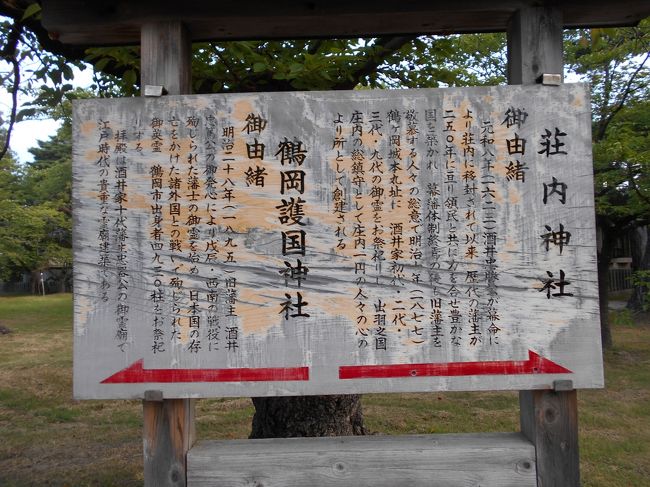 荘内神社
御由緒
元和八年(一六二二)酒井忠勝公が幕命に
より庄内に移封されて以来 歴代の藩主が
二五〇年に亘り領民と共に力を合せ豊かな
国を築かれ 幕藩体制終焉の後も 旧藩主を
敬慕する人々の総意で明治十年(一八七七)
鶴ヶ岡城本丸址に 酒井家初代・二代・
三代・九代の御霊をお祭祀りし 出羽之国
庄内の総鎮守として庄内一円の人々の心の
より所として創建される
鶴岡護国神社
御由緒
明治二十八年(一八九五)旧藩主 酒井
忠篤公の御発心により戊辰・西南の戦役に
殉じられた藩士の御霊を始め 日本国の存
亡をかけた諸外国との戦いで殉じられた
御英霊 鶴岡市出身者四九三〇柱をお祭祀
りする
拝殿は酒井家十代藩主忠器公の御霊廟で
江戸時代の貴重な宗廟建築である